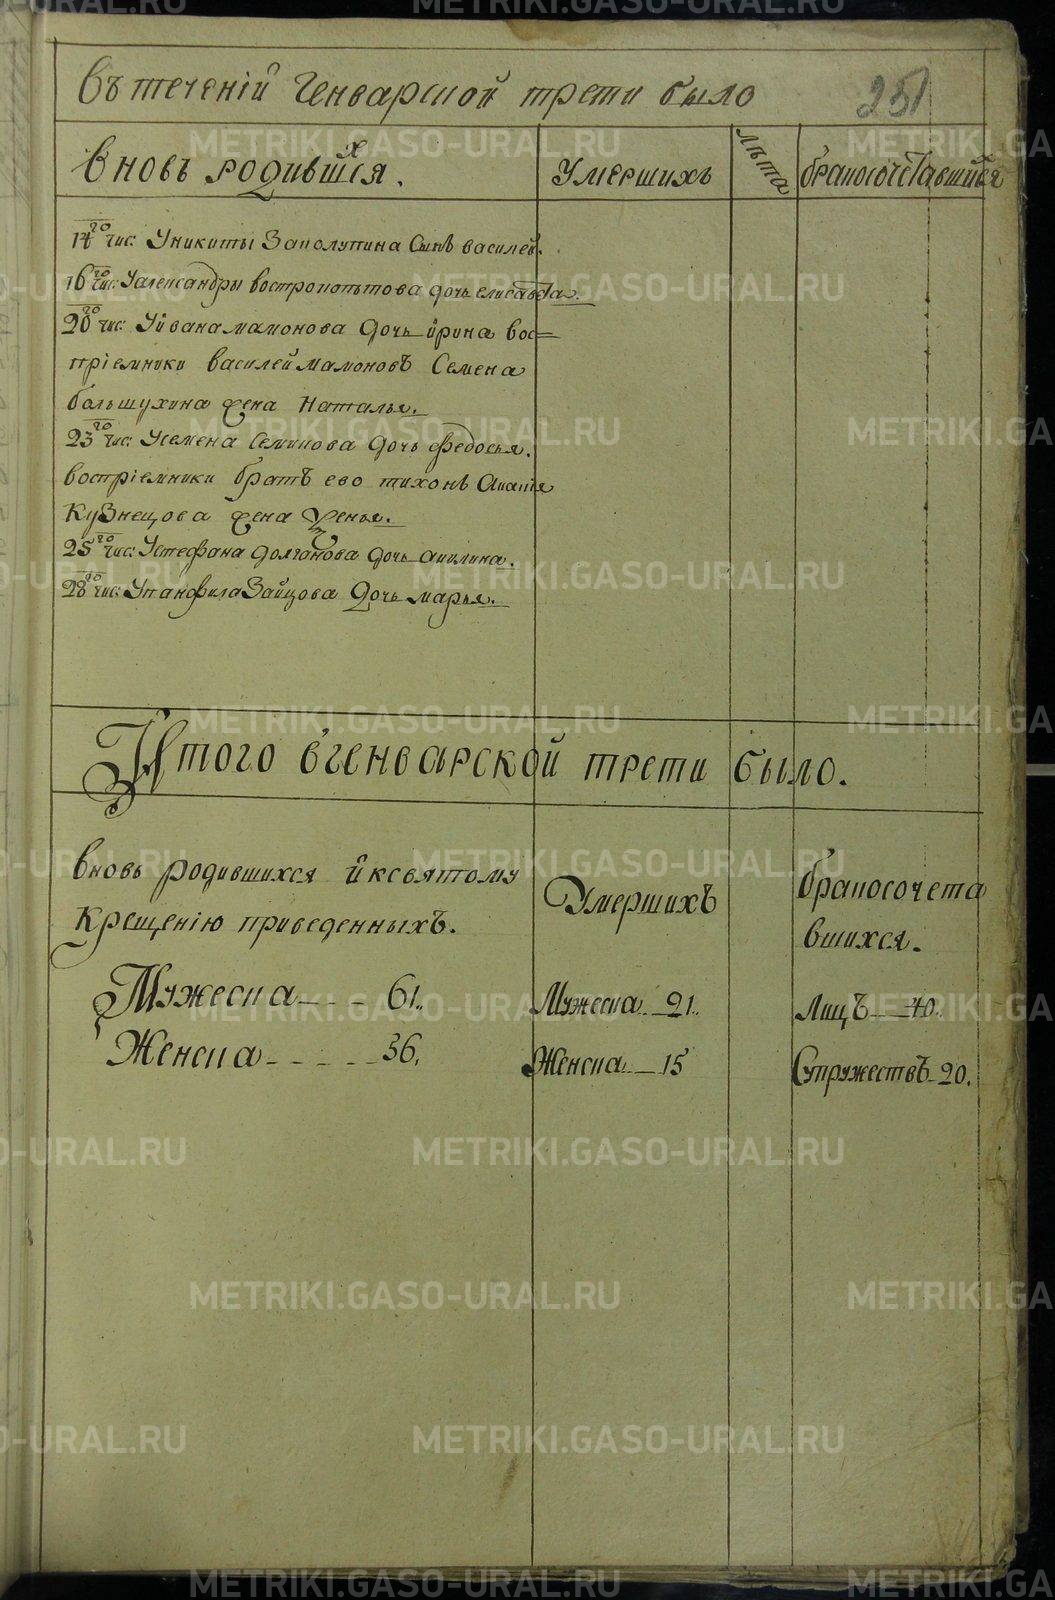 въ теченіи Генварской трети было
251
вновь родившихся.
умершихъ
лѣта
бракосочетавшихся
14го чис: у Никиты Заколупина сынъ василей.
16го чис: у александры востропотытова дочь елисавета.
20го чис: у Ивана мамонова дочь ирина вос=
пріемники василей мамоновъ Семена
большухина жена Наталья.
23го чис: у семена Семинова дочь федосья.
востріемники братъ ево тихонъ
Кузнецова жена
25го чис: у стефана долганова дочь акилина.
28го чис: у панфила Зайцова дочь марья.
Итого вгенварской трети было.
вновь родившихся и ксвятому
крещенію приведенныхъ.
Мужеска 61.
Женска 56.
Умершихъ
Мужеска 21.
Женска 15
бракосочета
вшихся.
Лицъ 40.
Супружествъ 20.
METRIKI.GASO-URAL.RU